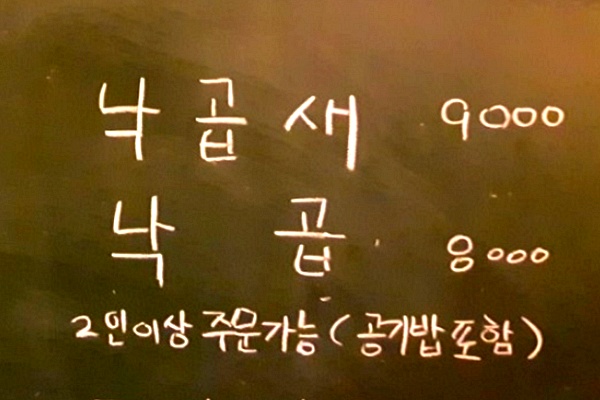 낙곱새 9000
낙곱 8000
2인이상 주문가능(공기밥포함)